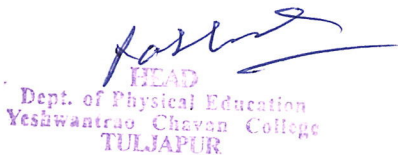 HEAD
Dept. of Physical Education
Yeshwantrao Chavan College
TULJAPUR